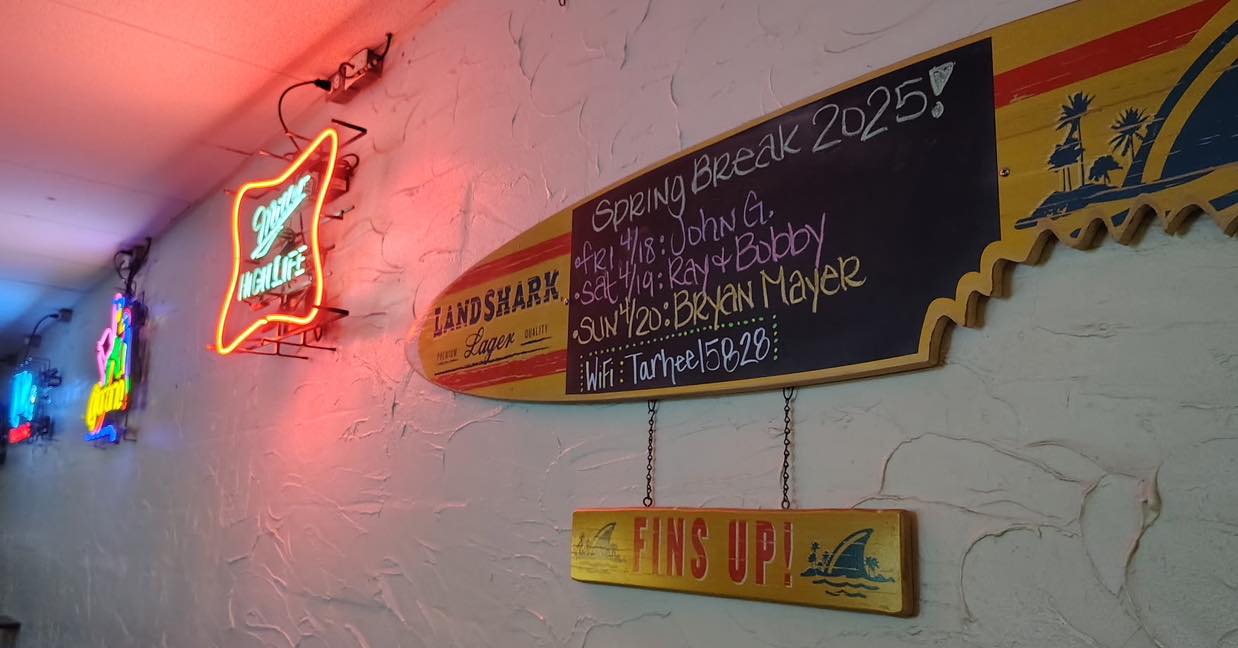 Miller
HIGH LIFE
LANDSHARK
PREMIUM Lager QUALITY
SPRING BREAK 2025!
•FRI 4/18: JOHN G.
•Sat 4/19: Ray & Bobby
•SUN 4/20: BRYAN MAYER
WiFi: Tarheel5828
FINS UP!